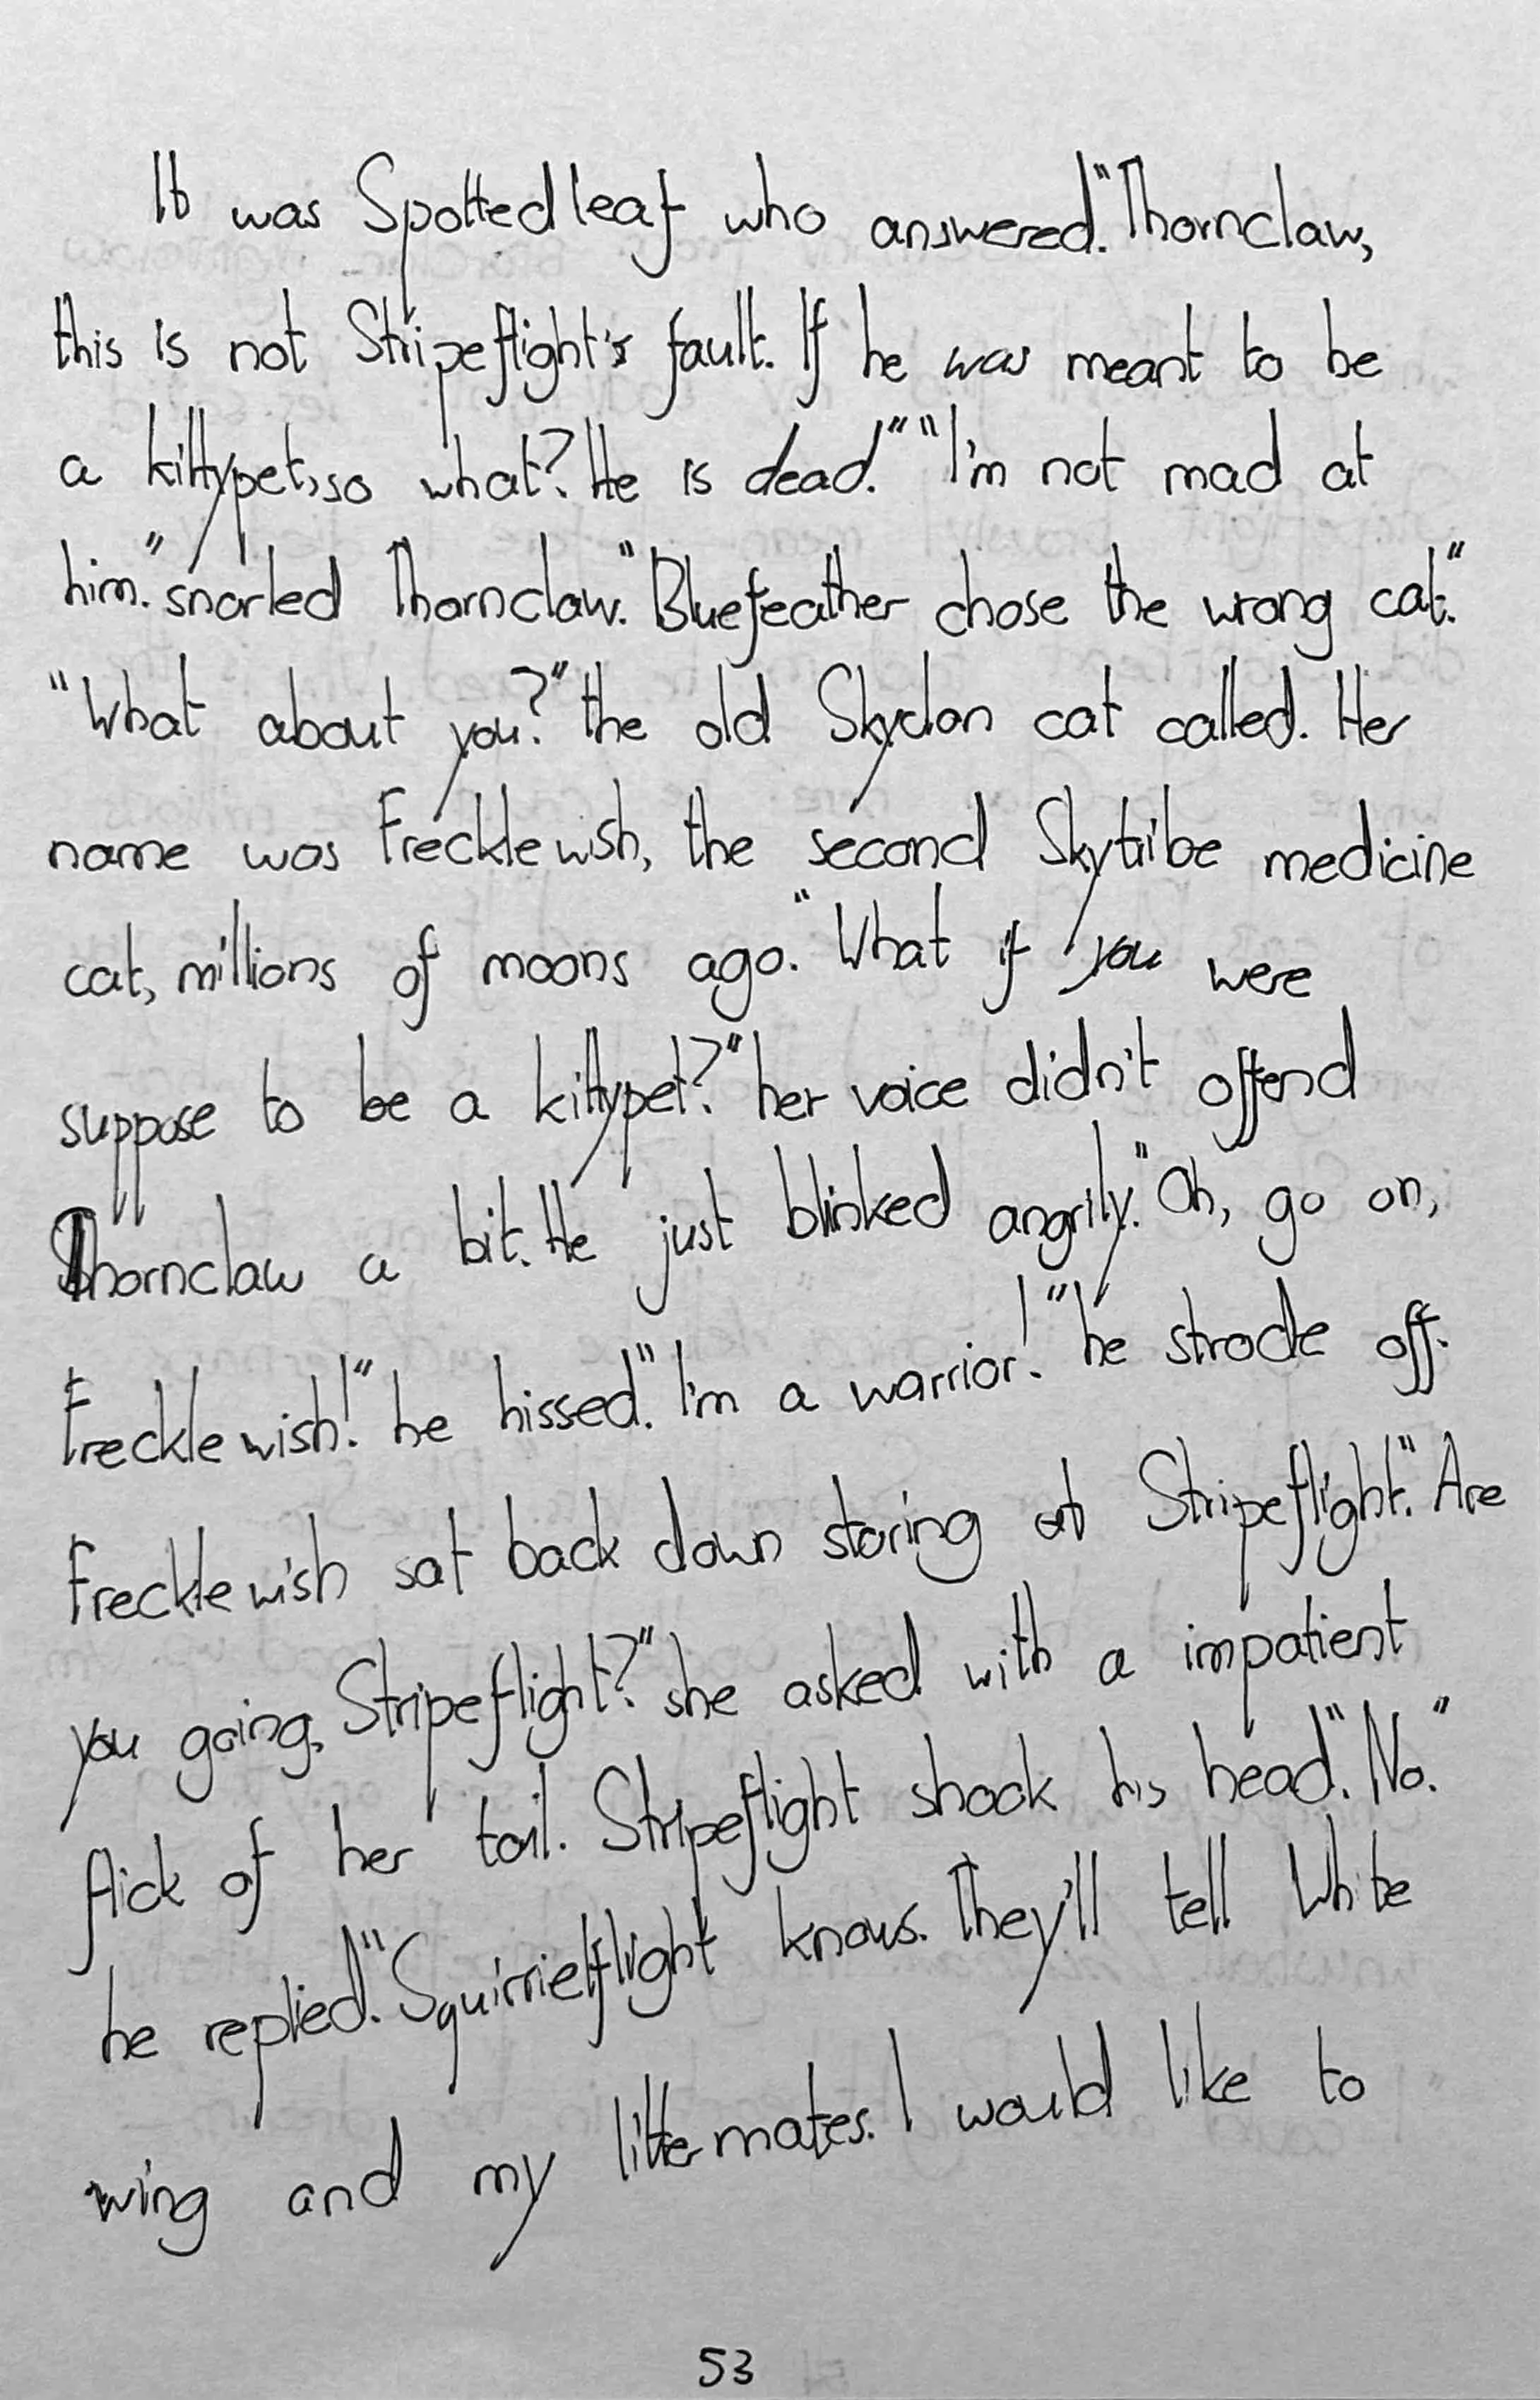 It was Spottedleaf who answered."Thornclaw,
this is not Stripeflight's fault. If he was meant to be
a kittypet, so what? He is dead." "I'm not mad at
him." snarled Thornclaw."Bluefeather chose the wrong cat."
"What about you?" the old Skyclan cat called. Her
name was Frecklewish, the second Skytribe medicine
cat, millions of moons ago."What if you were
suppose to be a kittypet?" her voice didn't offend
Thornclaw a bit. He just blinked angrily."Oh, go on,
Frecklewish!" he hissed."I'm a warrior!" he strode off.
Frecklewish sat back down staring at Stripeflight."Are
you going, Stripeflight?" she asked with a impatient
flick of her tail. Stripeflight shook his head."No."
he replied."Squirrielflight knows. They'll tell White
wing and my littermates. I would like to
53